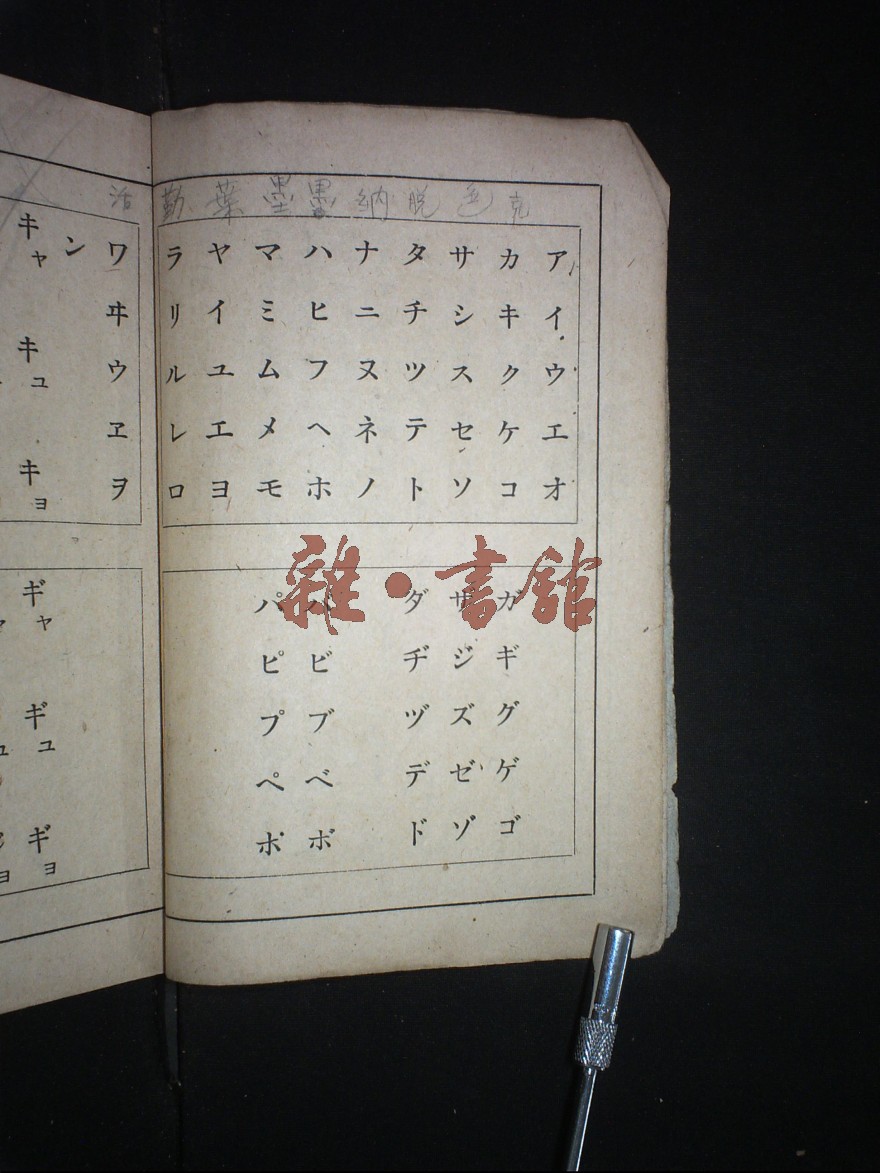 克色脱納墨墨葉勒活
アイウエオ
カキクケコ
サシスセソ
タチツテト
ナニヌネノ
ハヒフヘホ
マミムメモ
ヤイユエヨ
ラリルレロ
ワヰウヱヲ
ン
キャ キュ キョ
ガギグゲゴ
ザジズゼゾ
ダヂヅデド
バビブベボ
パピプペポ
ギャ ギュ ギョ
雜・書館